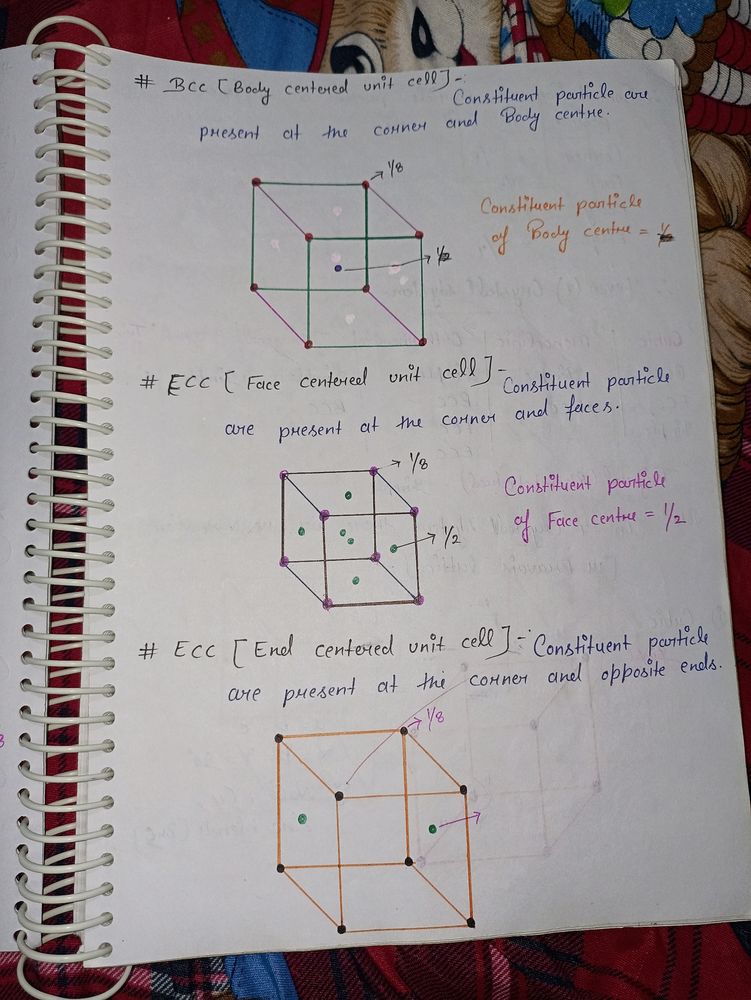 # BCC [Body centered unit cell]-:
Constituent particle are
present at the corner and Body centre.
1/8
Constituent particle
of Body centre =
# ECC [Face centered unit cell]- Constituent particle
are present at the corner and faces.
1/8
Constituent particle
of Face centre = 1/2
1/2
# ECC [End centered unit cell]-: Constituent particle
are present at the corner and opposite ends.
1/8